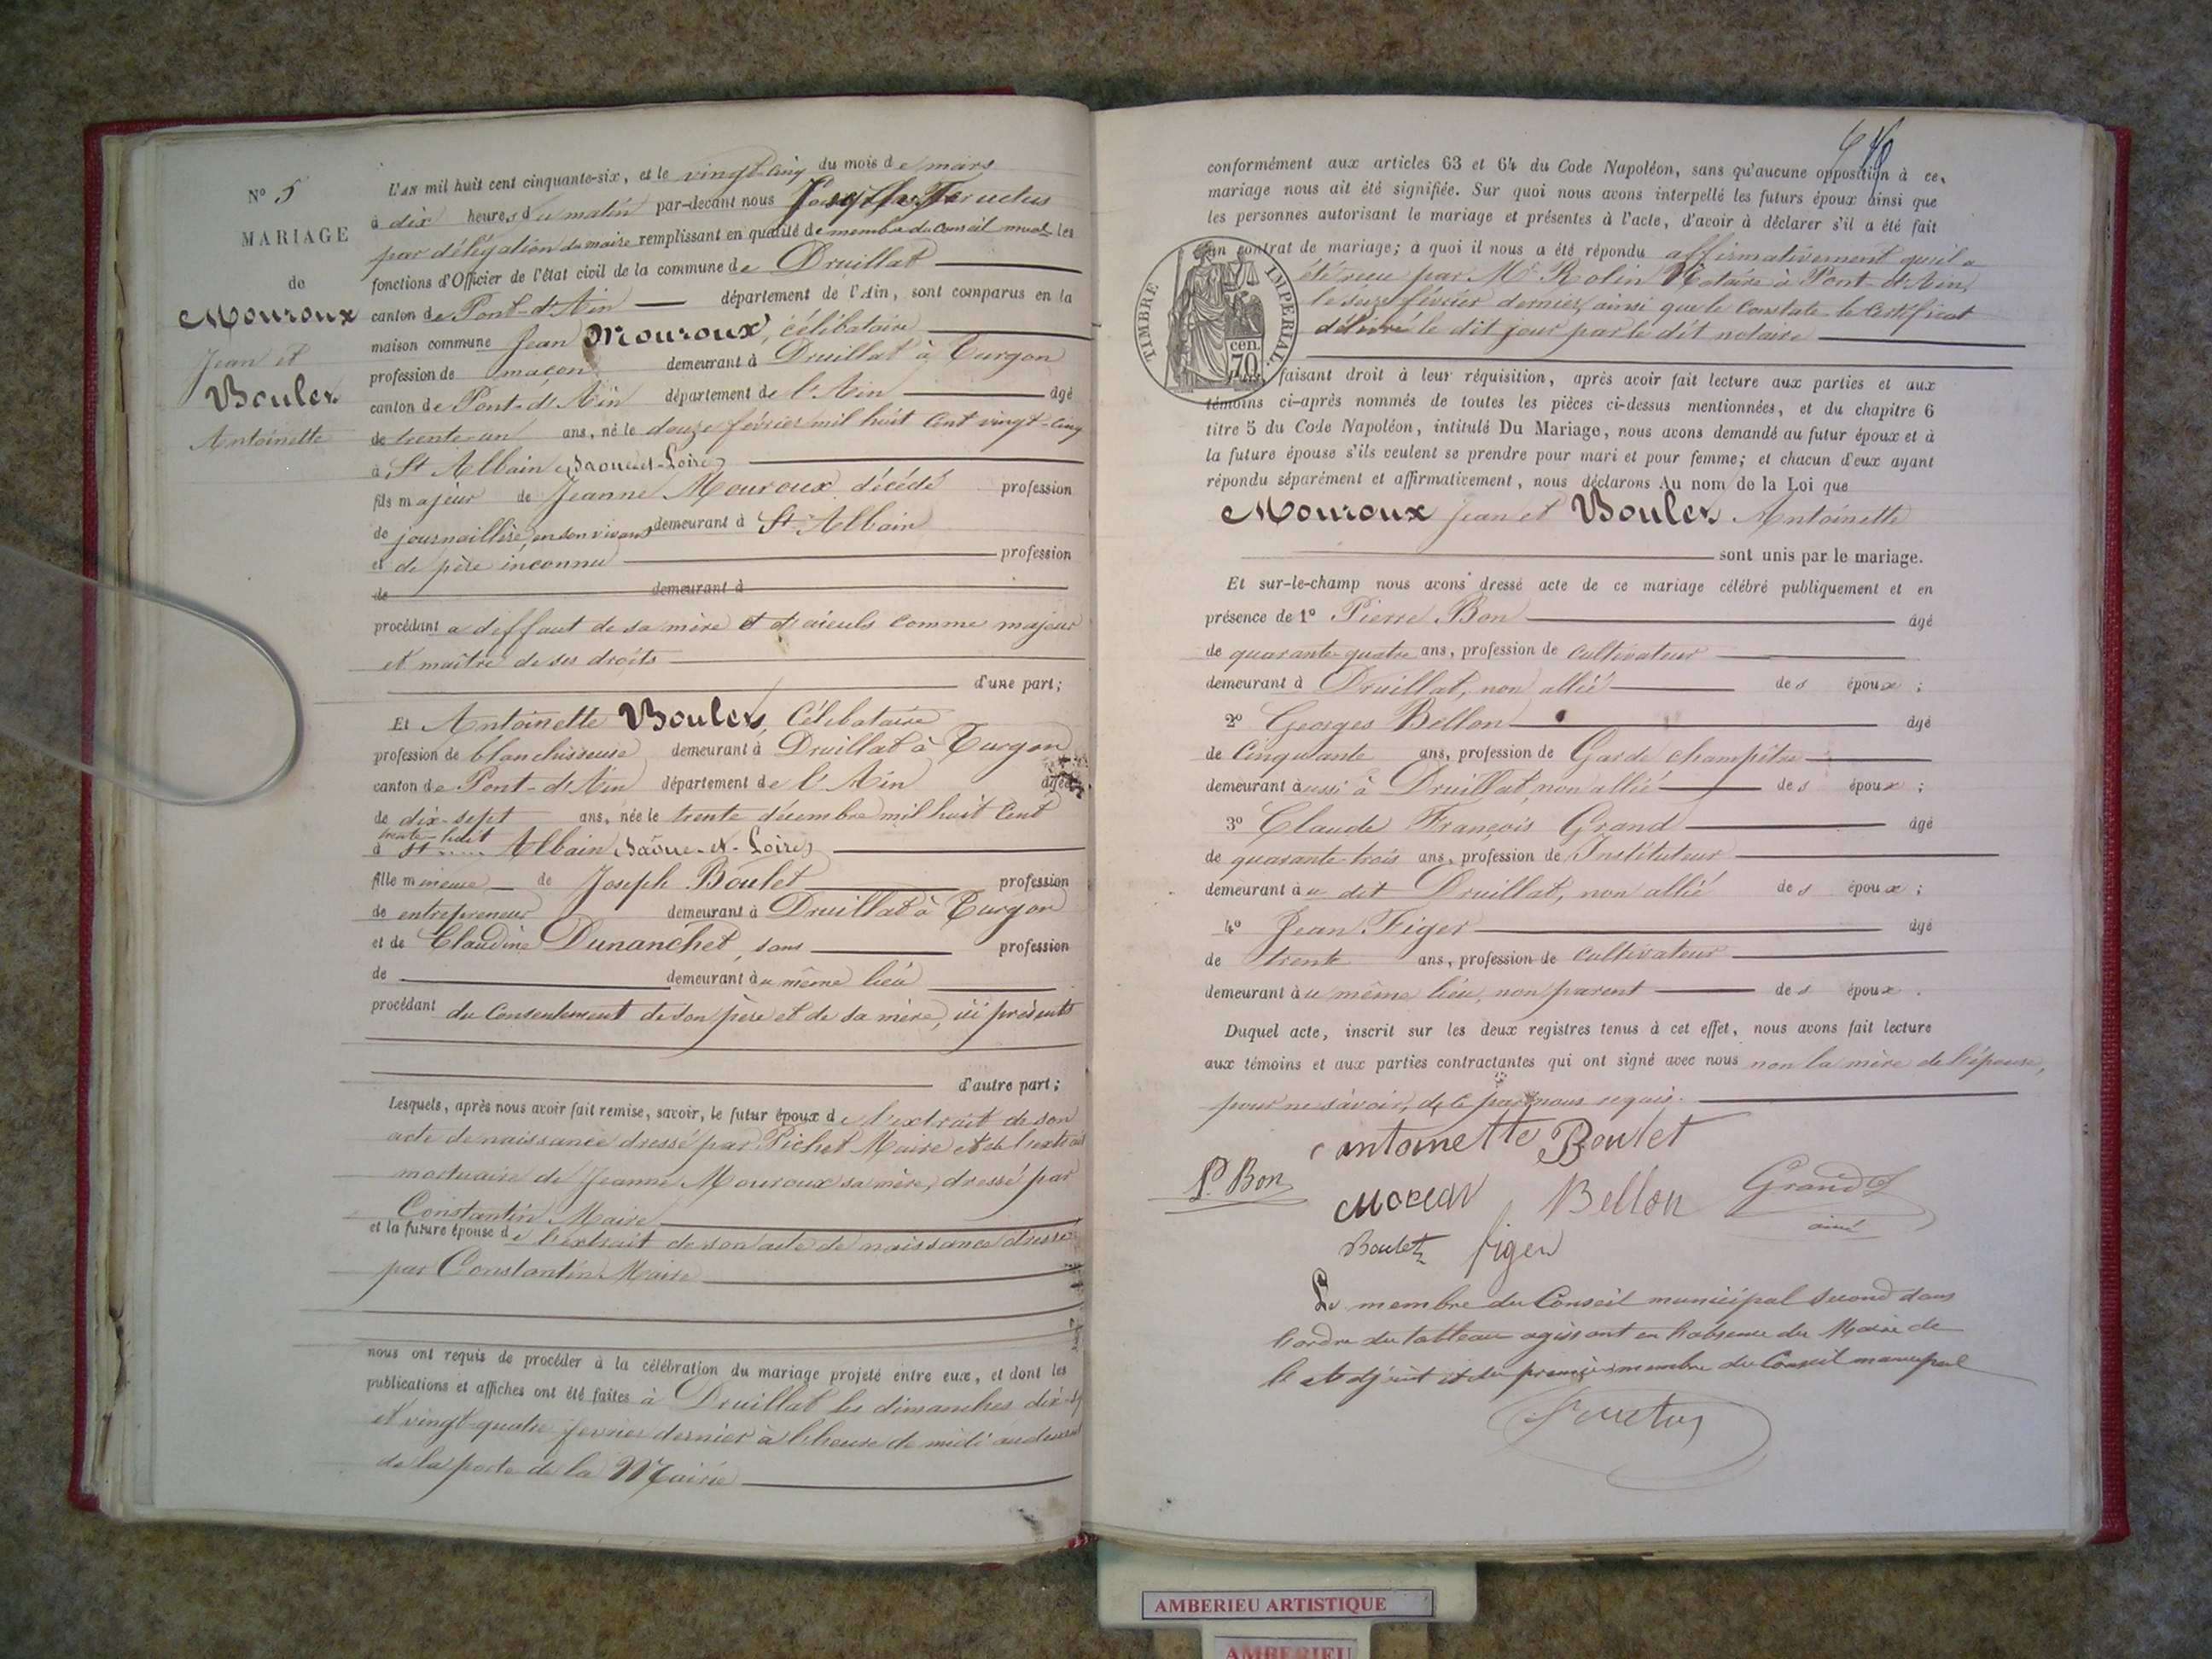 N° 5
MARIAGE
de
Mouroux
Jean et
Boulet
Antoinette
L'AN mil huit cent cinquante-six, et le vingt-cinq du mois de mars
à dix heures du matin par-devant nous Fructus
par délégation du maire remplissant en qualité de membre du Conseil mual les
fonctions d'Officier de l'état civil de la commune de Druillat
canton de Pont-d'Ain département de l'Ain, sont comparus en la
maison commune Jean Mouroux, célibataire
profession de maçon demeurant à Druillat à Turgon
canton de Pont-d'Ain département de l'Ain âgé
de trente-un ans, né le douze février mil huit cent vingt-cinq
à St Albain (Saône-et-Loire)
fils majeur de Jeanne Mouroux décédé profession
de journaillère, en son vivant demeurant à St Albain
et de père inconnu profession
de demeurant à
procédant a deffaut de sa mère et d'aïeuls comme majeur
et maître de ses droits
d'une part;
Et Antoinette Boulet, Célibataire
profession de blanchisseuse demeurant à Druillat à Turgon
canton de Pont-d'Ain département de l'Ain âgée
de dix-sept ans, née le trente décembre mil huit cent
trente-huit
à St Albain (Saône-et-Loire)
fille mineure de Joseph Boulet profession
de entrepreneur demeurant à Druillat à Turgon
et de Claudine Dunanchet, sans profession
de demeurant au même lieu
procédant du consentement de son père et de sa mère, ici présents
d'autre part;
Lesquels, après nous avoir fait remise, savoir, le futur époux de l'extrait de son
acte de naissance dressé par Pichet Maire et de l'extrait
mortuaire de Jeanne Mouroux sa mère, dressé par
Constantin Maire
et la future épouse de l'extrait de son acte de naissance dressé
par Constantin Maire
nous ont requis de procéder à la célébration du mariage projeté entre eux, et dont les
publications et affiches ont été faites à Druillat les dimanches dix-sept
et vingt-quatre février dernier à l'heure de midi au devant
de la porte de la Mairie
conformément aux articles 63 et 64 du Code Napoléon, sans qu'aucune opposition à ce
mariage nous ait été signifiée. Sur quoi nous avons interpellé les futurs époux ainsi que
les personnes autorisant le mariage et présentes à l'acte, d'avoir à déclarer s'il a été fait
un contrat de mariage; à quoi il nous a été répondu affirmativement qu'il a
été reçu par Me Rolin Notaire à Pont-d'Ain,
le seize février dernier, ainsi que le constate le certificat
délivré le dit jour par le dit notaire
TIMBRE IMPERIAL.
cen.
70
Puis, faisant droit à leur réquisition, après avoir fait lecture aux parties et aux
témoins ci-après nommés de toutes les pièces ci-dessus mentionnées, et du chapitre 6
titre 5 du Code Napoléon, intitulé Du Mariage, nous avons demandé au futur époux et à
la future épouse s'ils veulent se prendre pour mari et pour femme; et chacun d'eux ayant
répondu séparément et affirmativement, nous déclarons Au nom de la Loi que
Mouroux Jean et Boulet Antoinette
sont unis par le mariage.
Et sur-le-champ nous avons dressé acte de ce mariage célébré publiquement et en
présence de 1° Pierre Bon âgé
de quarante-quatre ans, profession de cultivateur
demeurant à Druillat, non allié des époux;
2° Georges Bellon âgé
de Cinquante ans, profession de Garde champêtre
demeurant aussi à Druillat, non allié des époux;
3° Claude François Grand âgé
de quarante-trois ans, profession de Instituteur
demeurant au dit Druillat, non allié des époux;
4° Jean Figer âgé
de trente ans, profession de cultivateur
demeurant au même lieu, non parent des époux.
Duquel acte, inscrit sur les deux registres tenus à cet effet, nous avons fait lecture
aux témoins et aux parties contractantes qui ont signé avec nous non la mère de l'épouse,
pour ne savoir, de ce par nous requis.
antoinette Boulet
P. Bon
Bellon
Grand
ainé
Boulet figer
Le membre du Conseil municipal second dans
l'ordre du tableau agissant en l'absence du Maire de
l'Adjoint et du premier membre du Conseil municipal
Fructus
AMBERIEU ARTISTIQUE
AMBERIEU